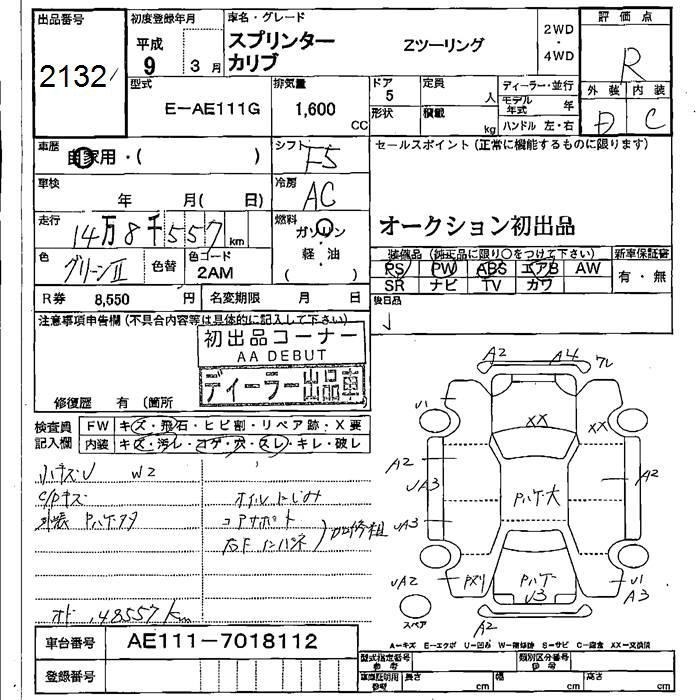 出品番号
2132
初度登録年月
平成
9 3月
車名・グレード
スプリンター
カリブ
Zツーリング
2WD
・
4WD
評価点
R
外装 内装
D C
型式
E-AE111G
排気量
1,600
CC
ドア
5
定員
人
形状
積載
kg
ディーラー・並行
モデル年式 年
ハンドル 左・右
車歴
自家用・( )
シフト
F5
セールスポイント(正常に機能するものに限ります)
オークション初出品
車検
年 月( 日)
冷房
AC
走行
14万8千557km
燃料
ガソリン
・
軽・油
( )
色
グリーンII
色替
色コード
2AM
装備品(純正品に限り○をつけて下さい)
PS PW ABS エアB AW
SR ナビ TV カワ
新車保証書
有・無
R券 8,550 円
名変期限 月 日
後日品
注意事項申告欄(不具合内容等は具体的に記入して下さい)
初出品コーナー
AA DEBUT
ディーラー出品車
修復歴 有(箇所
検査員
記入欄
FW キズ・飛石・ヒビ割・リペア跡・X要
内装 キズ・汚レ・コゲ・穴・スレ・キレ・破レ
小キズU W2
C/Pキズ
外装 Pハゲ
オイルにじみ
コアサポート
右F インパネ
加修粗
オド 148557km
A2 A4
U1
XX XX
A2
UA3
UA3
A2
Pハゲ大
UA2
Pハゲ
U3
U1
A3
A2
スペア
A-キズ E-エクボ U-凹み W-補修跡 S-サビ C-腐食 XX-交換済
車台番号 AE111-7018112
登録番号
型式指定番号
参考
類別区分番号
参考
車庫証明用
参考
長さ cm 幅 cm 高さ cm